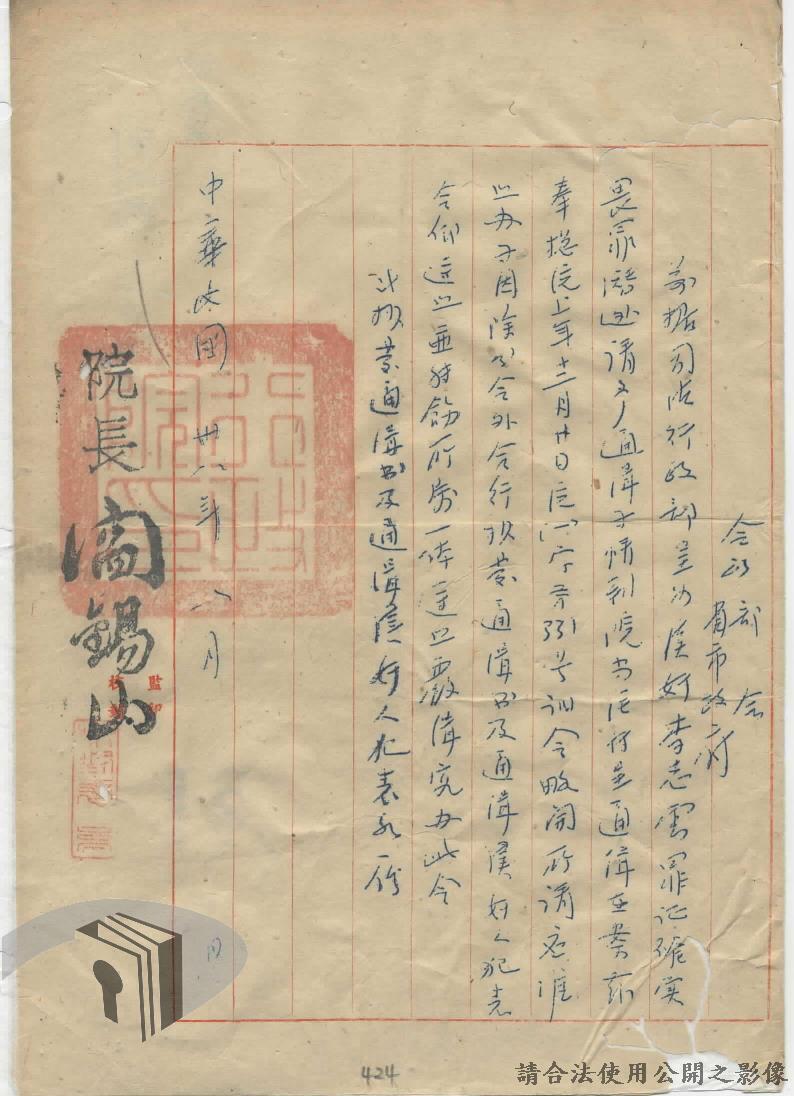 令
各部會
省市政府
前據司法行政部呈為漢奸李志雲罪証確實
畏罪潛逃請文人通緝等情到院當經轉呈通緝在案茲
奉總統上年十二月廿日 字第 号訓令畧開所請應准
照办等因除分令外合行抄發通緝書及通緝漢奸人犯表
令仰遵照並轉飭所屬一体遵照嚴緝究办此令
計抄發通緝書及通緝漢奸人犯表永一份
中華民國卅八年八月 日
院長閻錫山
監印
校對
424
請合法使用公開之影像